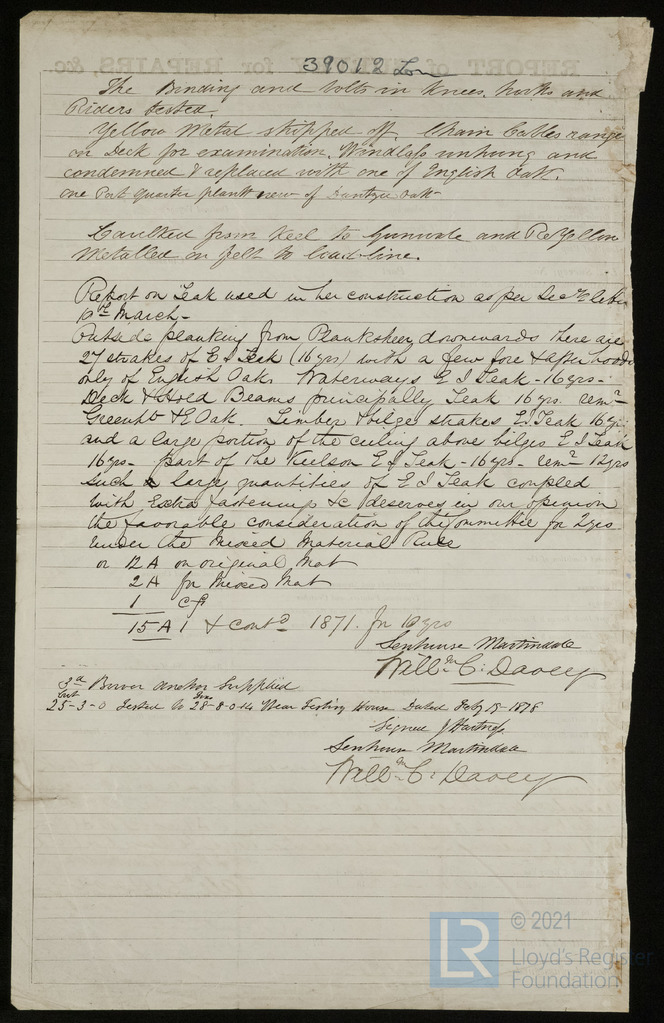 39012 Lon
The Binding and bolts in Knees, hooks and
Riders tested.
Yellow Metal stripped off. Chain Cables range
on Deck for examination. Windlass unhung and
condemned & replaced with one of English Oak.
one Port quarter plank new of Dantzic Oak
Caulked from Keel to Gunwale and ReYellow
Metalled on felt to load-line.
Report on Teak used in her construction as per Secy's letter
March-
Outside planking from Planksheer downwards there are
27 strakes of E I Teak (16 yrs) with a few fore & after hoods
only of English Oak. Waterways E I Teak - 16 yrs-
Deck & Hold Beams principally Teak 16 yrs. rem.r
Greenht & E Oak. Limber & bilge strakes E I Teak 16 yrs
and a large portion of the ceiling above bilges E I Teak
16 yrs- part of the Keelson E I Teak - 16 yrs - rem.r 12 yrs
Such large quantities of E I Teak coupled
with Extra fastening &c deserves in our opinion
the favorable consideration of the Committee for 2 yrs
under the Mixed Material Rule
or 12 A on original Mat
2 A for Mixed Mat
1 cf
15 A 1 & Contd 1871. for 10 yrs
Senhouse Martindale
Willm C: Davey
3rd Bower anchor Supplied
Cwt Tons
25-3-0 Tested to 28-8-0-14 Wear Testing House Dated Feby 15 1878
Signed J Hartness
Senhouse Martindale
Willm C: Davey
© 2021
LR
Lloyd's Register
Foundation